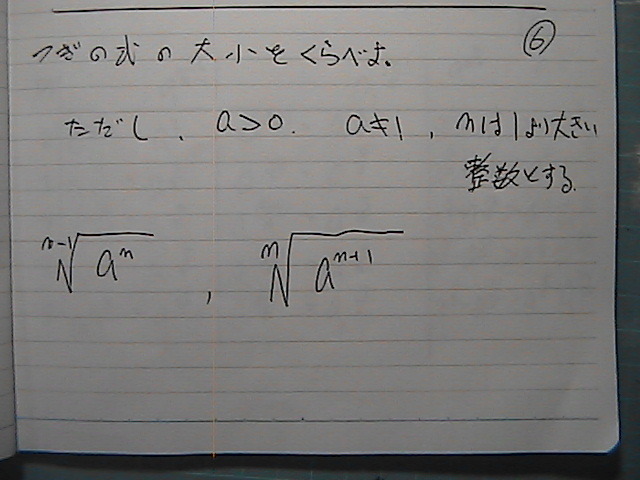 ⑥
つぎの式の大小をくらべよ。
ただし、a>0. a≠1, nは1より大きい
整数とする.
\sqrt[n-1]{a^n} , \sqrt[n]{a^{n+1}}